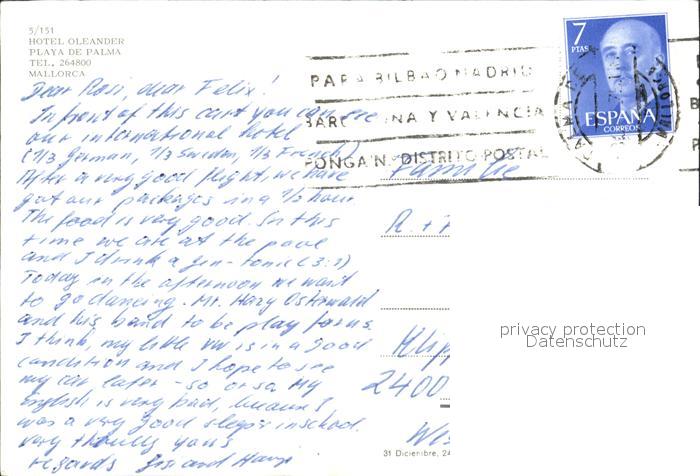 5/151
HOTEL OLEANDER
PLAYA DE PALMA
TEL., 264800
MALLORCA
Dear Rosi, dear Felix!
In front of this cart you can see
our international hotel
(1/3 German, 1/3 Sweden, 1/3 French)
After a very good flight, we have
got our packages in a 1/2 hour
The food is very good. In this
time we are at the pool
and I drink a gin-tonic (3:1)
Today in the afternoon we want
to go dancing. Mr. Hary Osterwald
and his band to be play for us.
I think, my little VW is in a good
condition and I hope to see
my car later - so or so. My
English is very bad, because I
was a very good sleeper in school.
very thrully yours
regards and
7
PTAS
ESPAÑA
CORREOS
PARA BILBAO MADRID
BARCELONA Y VALENCIA
PONGA N. DISTRITO POSTAL
Familie
R. +
Klip
2400
31 Diciembre, 24
privacy protection
Datenschutz